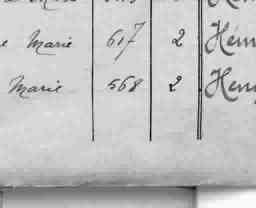 e Marie 617 2 Hém
Marie 568 2 Henr